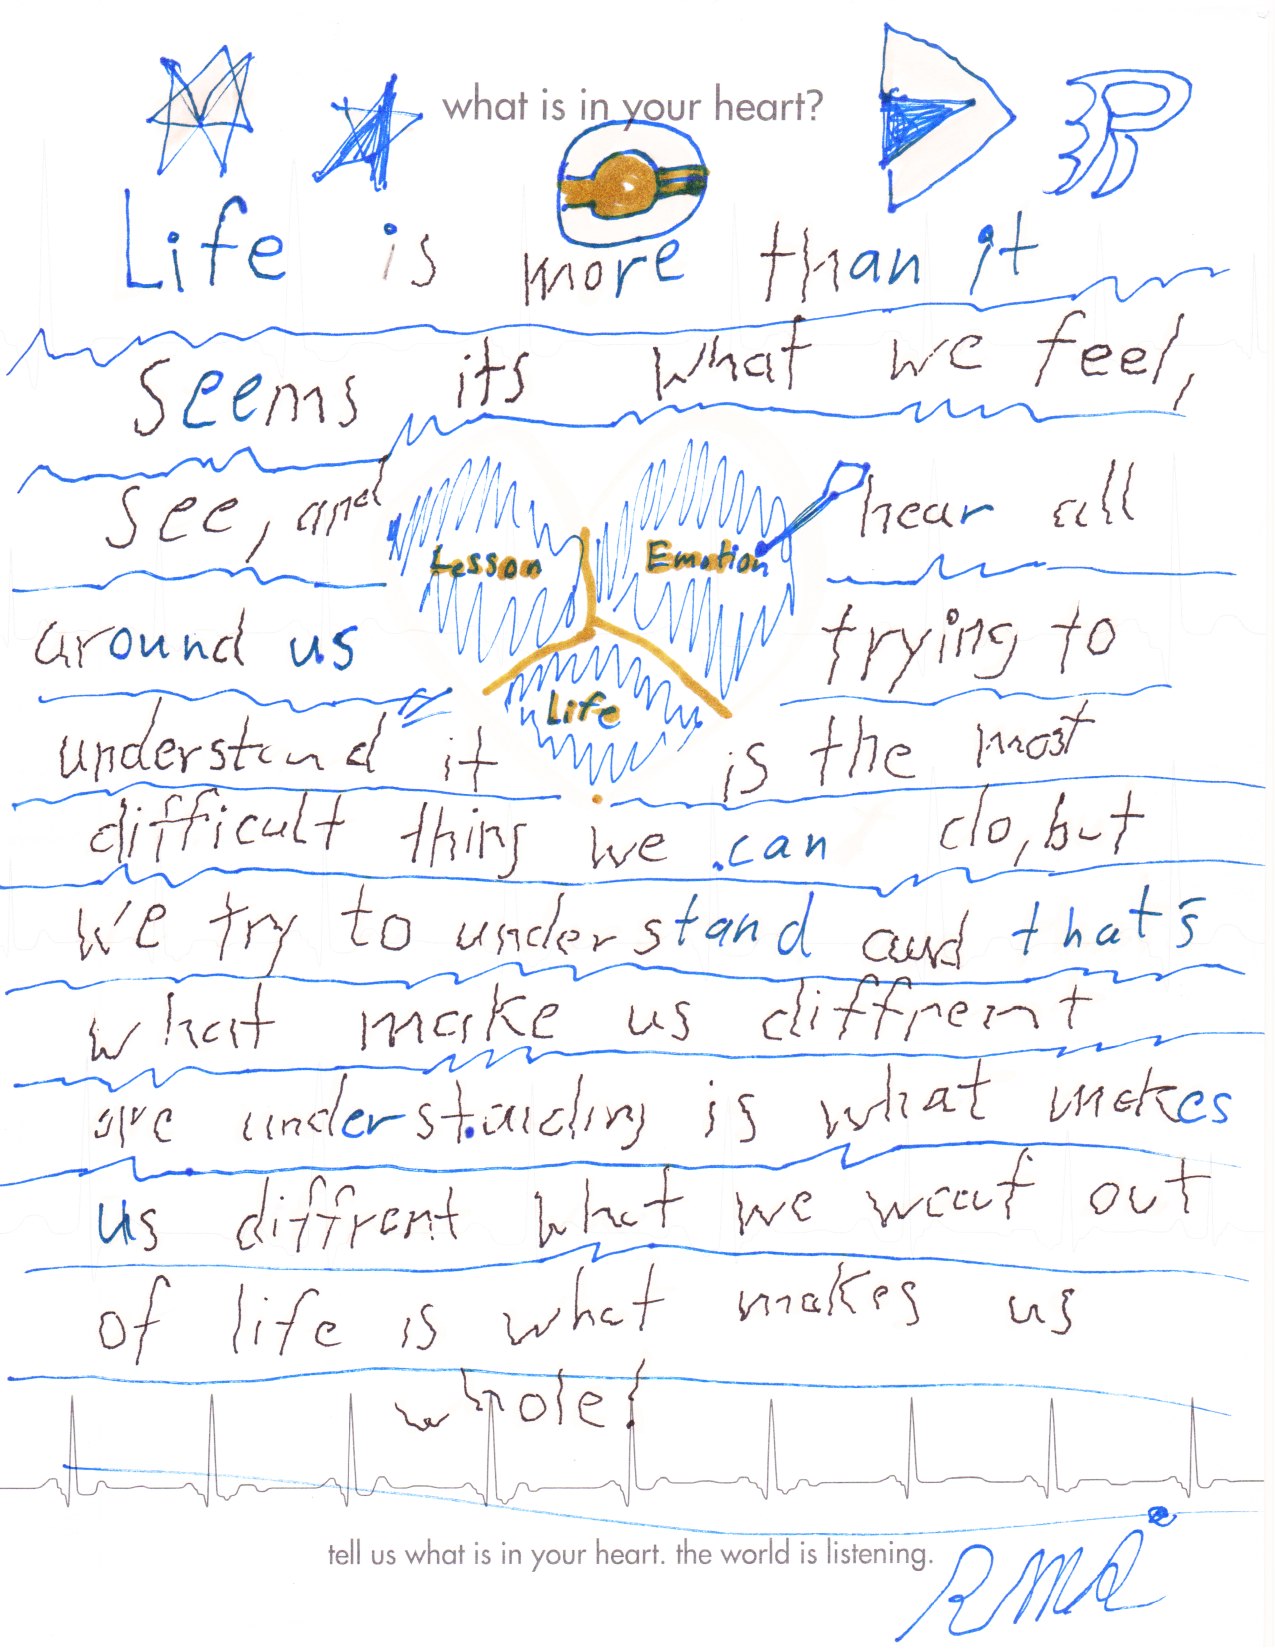 what is in your heart?
Life is more than it
seems its what we feel,
see, and hear all
Lesson Emotion
around us trying to
Life
understand it is the most
difficult thing we can do, but
we try to understand and that's
what make us diffrent
are understanding is what makes
us diffrent what we want out
of life is what makes us
whole!
tell us what is in your heart. the world is listening.
RMR